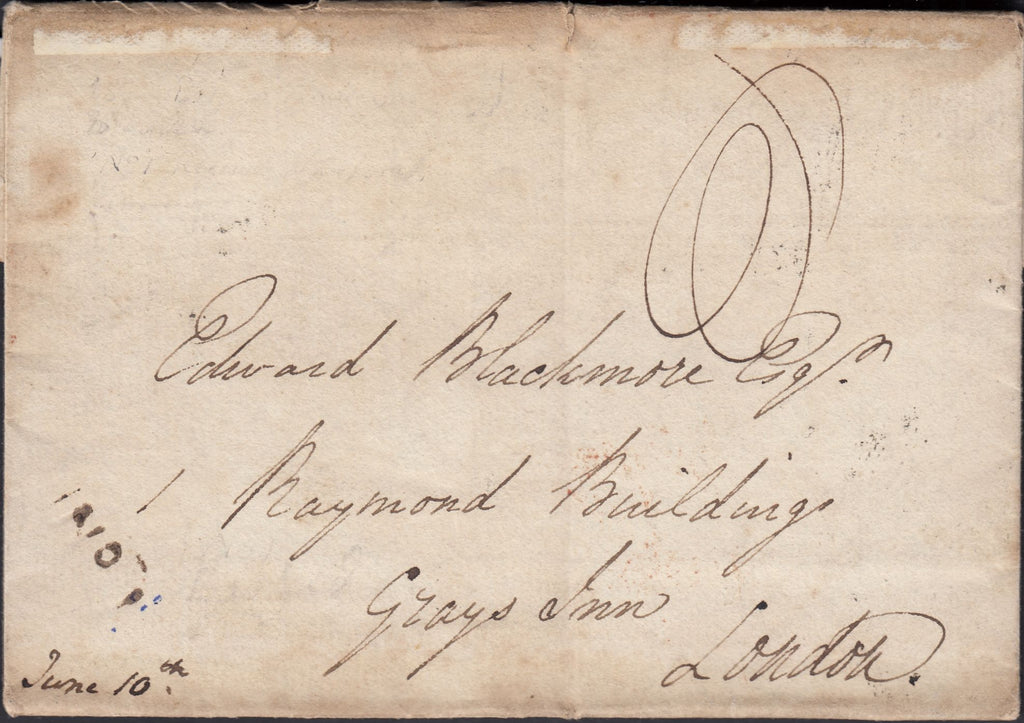 Edward Blackmore Esqr.
1 Raymond Buildings
Grays Inn
London.
June 10th.